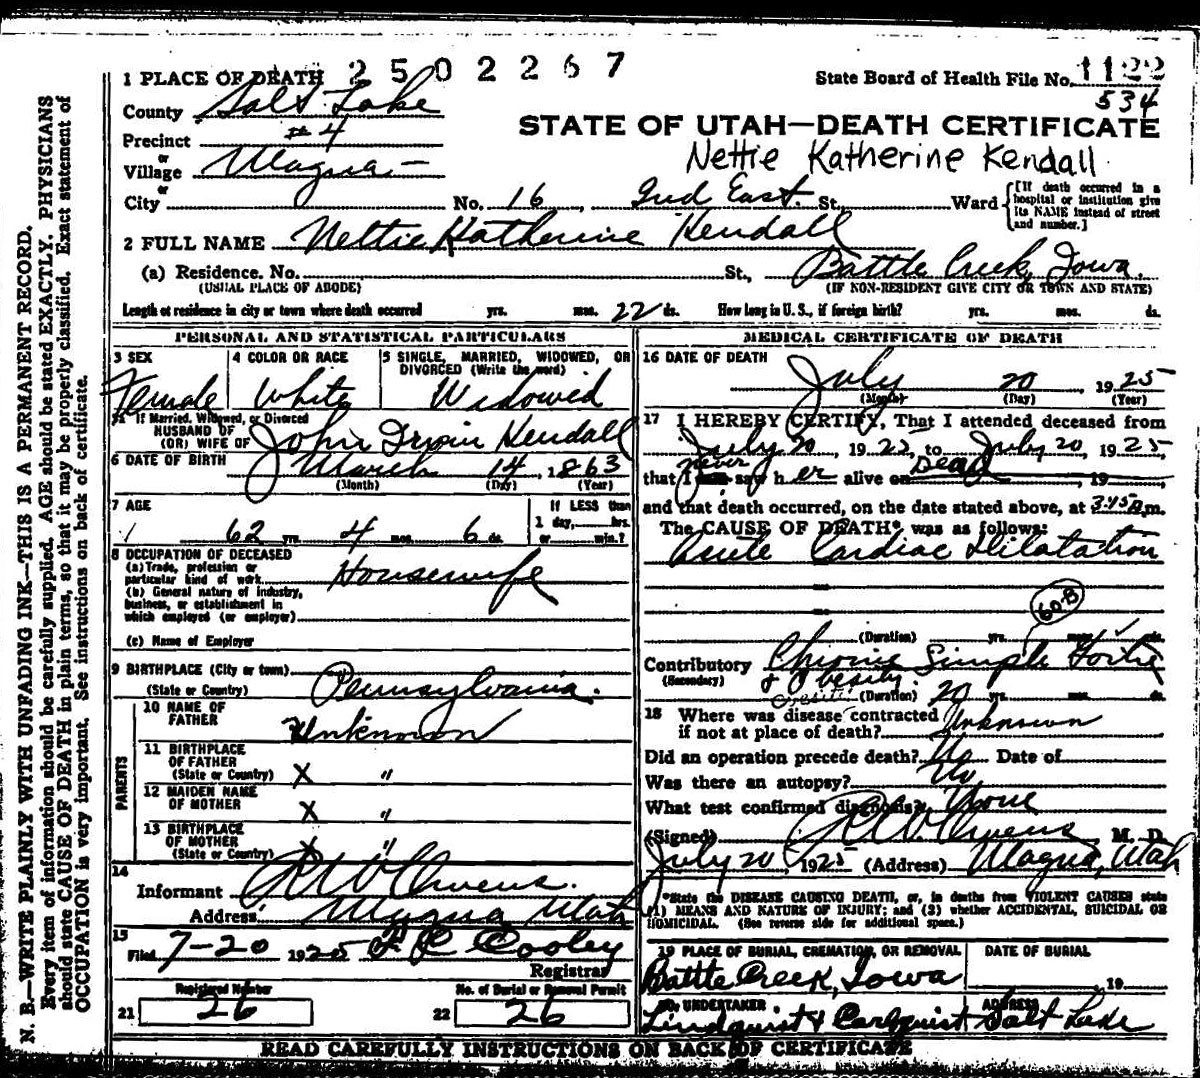 2502267
1 PLACE OF DEATH
State Board of Health File No. 1122
534
County Salt Lake
STATE OF UTAH—DEATH CERTIFICATE
Precinct # 4
Nettie Katherine Kendall
or
Village Magna
or
City No. 16, 2nd East. St. Ward
[If death occurred in a hospital or institution give its NAME instead of street and number.]
2 FULL NAME Nettie Katherine Kendall
(a) Residence. No. St., Battle Creek, Iowa.
(USUAL PLACE OF ABODE) (IF NON-RESIDENT GIVE CITY OR TOWN AND STATE)
Length of residence in city or town where death occurred yrs. mos. 22 ds. How long in U. S., if foreign birth? yrs. mos. ds.
PERSONAL AND STATISTICAL PARTICULARS
3 SEX Female
4 COLOR OR RACE White
5 SINGLE, MARRIED, WIDOWED, OR DIVORCED (Write the word) Widowed
If Married, Widowed, or Divorced
HUSBAND OF
(OR) WIFE OF John Irvin Kendall
6 DATE OF BIRTH March 14, 1863
(Month) (Day) (Year)
7 AGE
62 yrs. 4 mos. 6 ds.
If LESS than
1 day, hrs.
or min.?
8 OCCUPATION OF DECEASED
(a) Trade, profession or
particular kind of work Housewife
(b) General nature of industry,
business, or establishment in
which employed (or employer)
(c) Name of Employer
9 BIRTHPLACE (City or town)
(State or Country) Pennsylvania.
PARENTS
10 NAME OF
FATHER Unknown
11 BIRTHPLACE
OF FATHER
(State or Country) X "
12 MAIDEN NAME
OF MOTHER X "
13 BIRTHPLACE
OF MOTHER
(State or Country) X "
14
Informant R W Owens.
Address Magna Utah
15
Filed 7-20 1925 F C Cooley
Registrar
Registered Number
21 26
No. of Burial or Removal Permit
22 26
MEDICAL CERTIFICATE OF DEATH
16 DATE OF DEATH
July 20, 1925
(Month) (Day) (Year)
17 I HEREBY CERTIFY, That I attended deceased from
July 20, 1922, to July 20, 1925,
never Dead
that I saw her alive on , 19
and that death occurred, on the date stated above, at 3:45 m.
The CAUSE OF DEATH* was as follows:
Acute Cardiac Dilatation
60-B
(Duration) yrs. mos. ds.
Contributory Chronic Simple Goitre
(Secondary) & Obesity.
obesity (Duration) 20 yrs. mos. ds.
18 Where was disease contracted
if not at place of death? Unknown
Did an operation precede death? No Date of
Was there an autopsy? No
What test confirmed diagnosis? None
(Signed) R W Owens M. D.
July 20, 1925 (Address) Magna, Utah
*State the DISEASE CAUSING DEATH, or, in deaths from VIOLENT CAUSES state
(1) MEANS AND NATURE OF INJURY; and (2) whether ACCIDENTAL, SUICIDAL OR
HOMICIDAL. (See reverse side for additional space.)
19 PLACE OF BURIAL, CREMATION, OR REMOVAL
Battle Creek, Iowa
DATE OF BURIAL
, 19
20 UNDERTAKER
Lindquist & Carlquist
ADDRESS
Salt Lake
READ CAREFULLY INSTRUCTIONS ON BACK OF CERTIFICATE
N. B.—WRITE PLAINLY WITH UNFADING INK—THIS IS A PERMANENT RECORD.
Every item of information should be carefully supplied. AGE should be stated EXACTLY. PHYSICIANS
should state CAUSE OF DEATH in plain terms, so that it may be properly classified. Exact statement of
OCCUPATION is very important. See instructions on back of certificate.